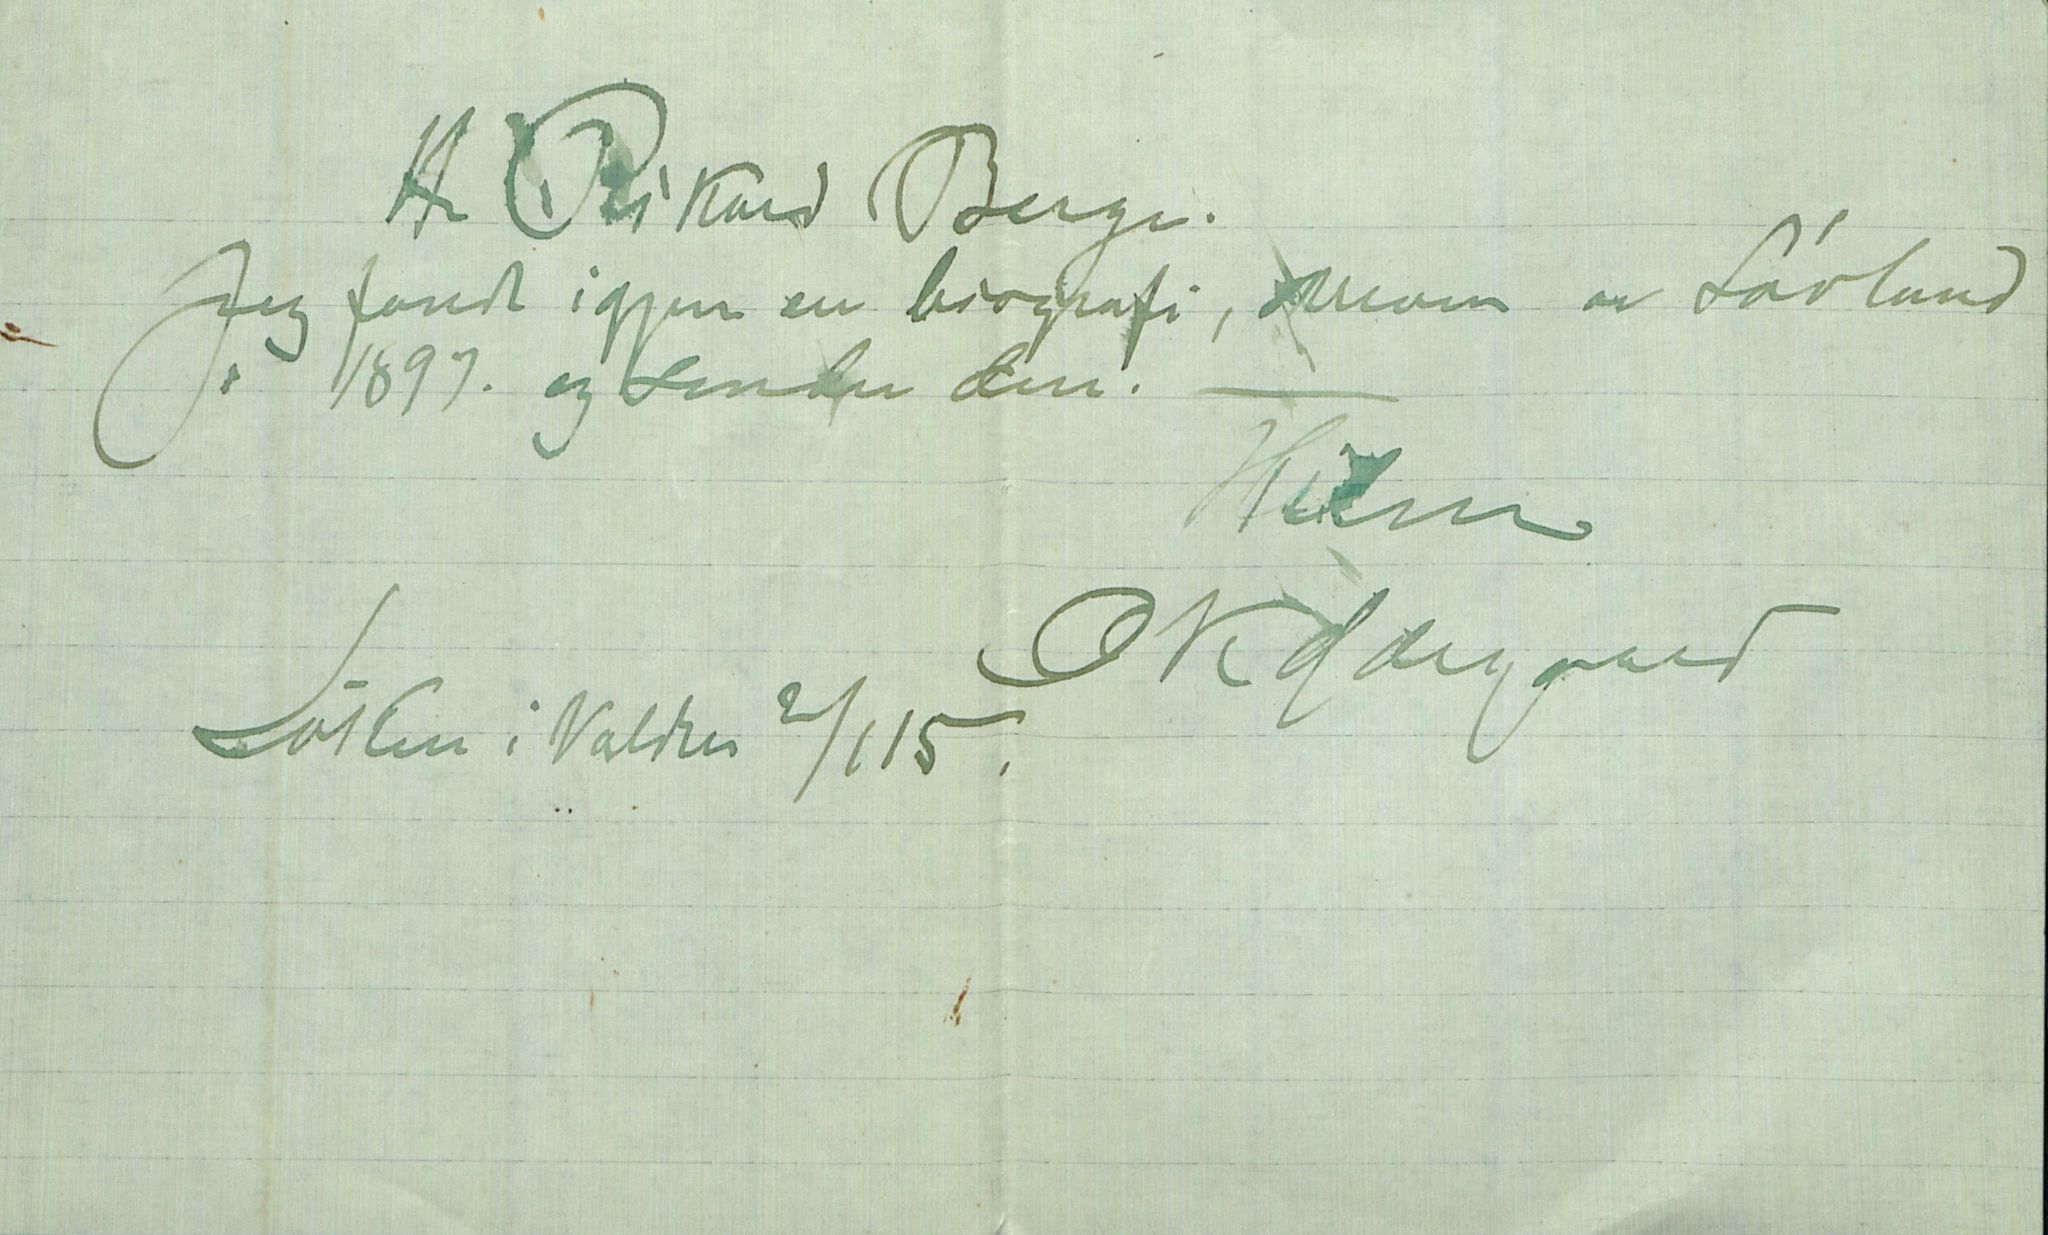 Hr Rikard Berge.
Jeg fandt igjen en biografi, skreven av Lövland
i 1897. og sender den. —
Hilsen
OK Ødegaard
Löken i Valdres 2/1 15.